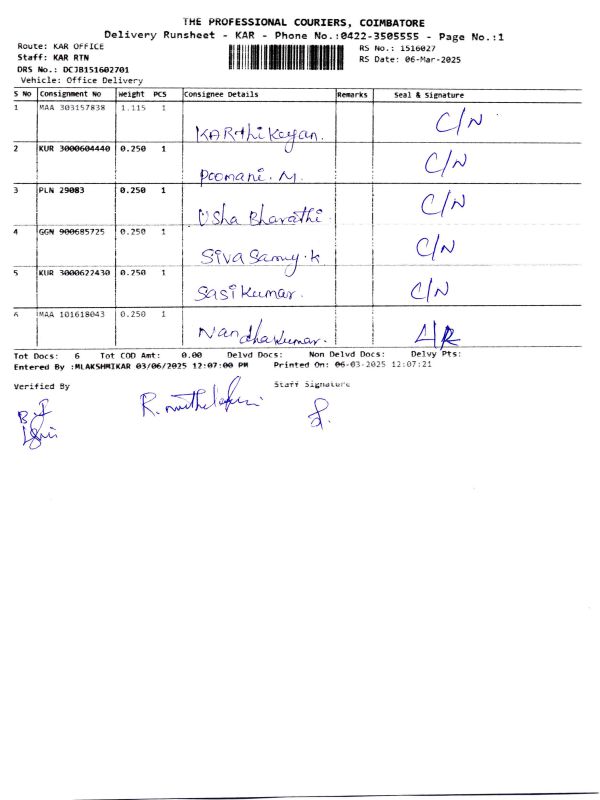 THE PROFESSIONAL COURIERS, COIMBATORE
Delivery Runsheet - KAR - Phone No.:0422-3505555 - Page No.:1
Route: KAR OFFICE RS No.: 1516027
Staff: KAR RTN RS Date: 06-Mar-2025
DRS No.: DCJB151602701
Vehicle: Office Delivery
S No Consignment No Weight PCS Consignee Details Remarks Seal & Signature
1 MAA 303157838 1.115 1 KARthiKeyan. C/N
2 KUR 3000604440 0.250 1 Poomani. M. C/N
3 PLN 29083 0.250 1 Usha Bharathi C/N
4 GGN 900685725 0.250 1 Siva Samy. K C/N
5 KUR 3000622430 0.250 1 Sasi Kumar. C/N
6 MAA 101618043 0.250 1 Nandhakumar.
Tot Docs: 6 Tot COD Amt: 0.00 Delvd Docs: Non Delvd Docs: Delvy Pts:
Entered By :MLAKSHMIKAR 03/06/2025 12:07:00 PM Printed On: 06-03-2025 12:07:21
Verified By Staff Signature